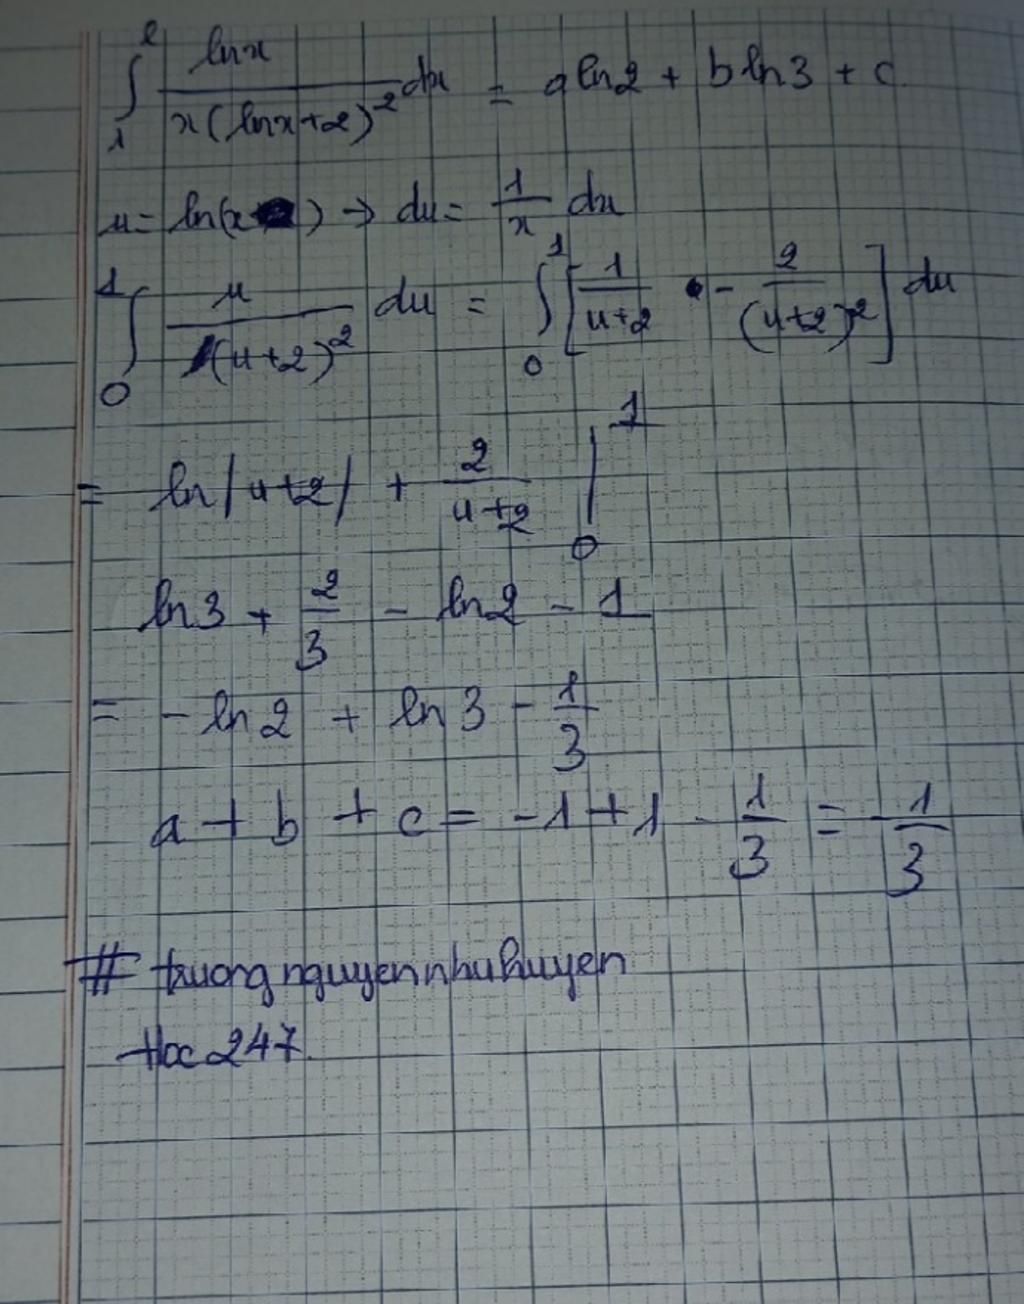 ∫₁ᵉ lnx / x(lnx+2)² dx = aln2 + bln3 + c
u = ln(x) → du = 1/x dx
∫₀¹ u/(u+2)² du = ∫₀¹ [1/(u+2) - 2/(u+2)²] du
= ln|u+2| + 2/(u+2) |₀¹
ln3 + 2/3 - ln2 - 1
= -ln2 + ln3 - 1/3
a + b + c = -1 + 1 - 1/3 = -1/3
# truongnguyennhuhuyen
Hoc247.